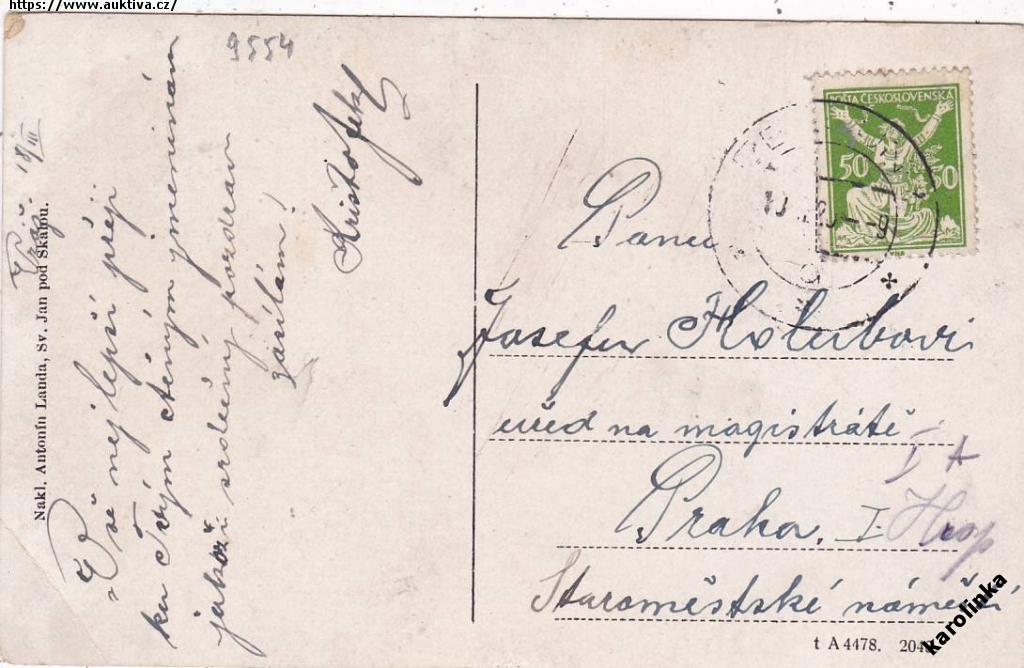 https://www.auktiva.cz/
9554
18/III
Vše nejlepší přeji
ku Tvým ctěným jmeninám
jakož i srdečný pozdrav
zasílám!
Krištofek
Nakl. Antonín Landa, Sv. Jan pod Skalou.
POŠTA ČESKOSLOVENSKÁ
50 50
Panu
Josefu Holubovi
úřed na magistrátě
I A
Praha, I.
Staroměstské náměstí
t A 4478.
karolinka